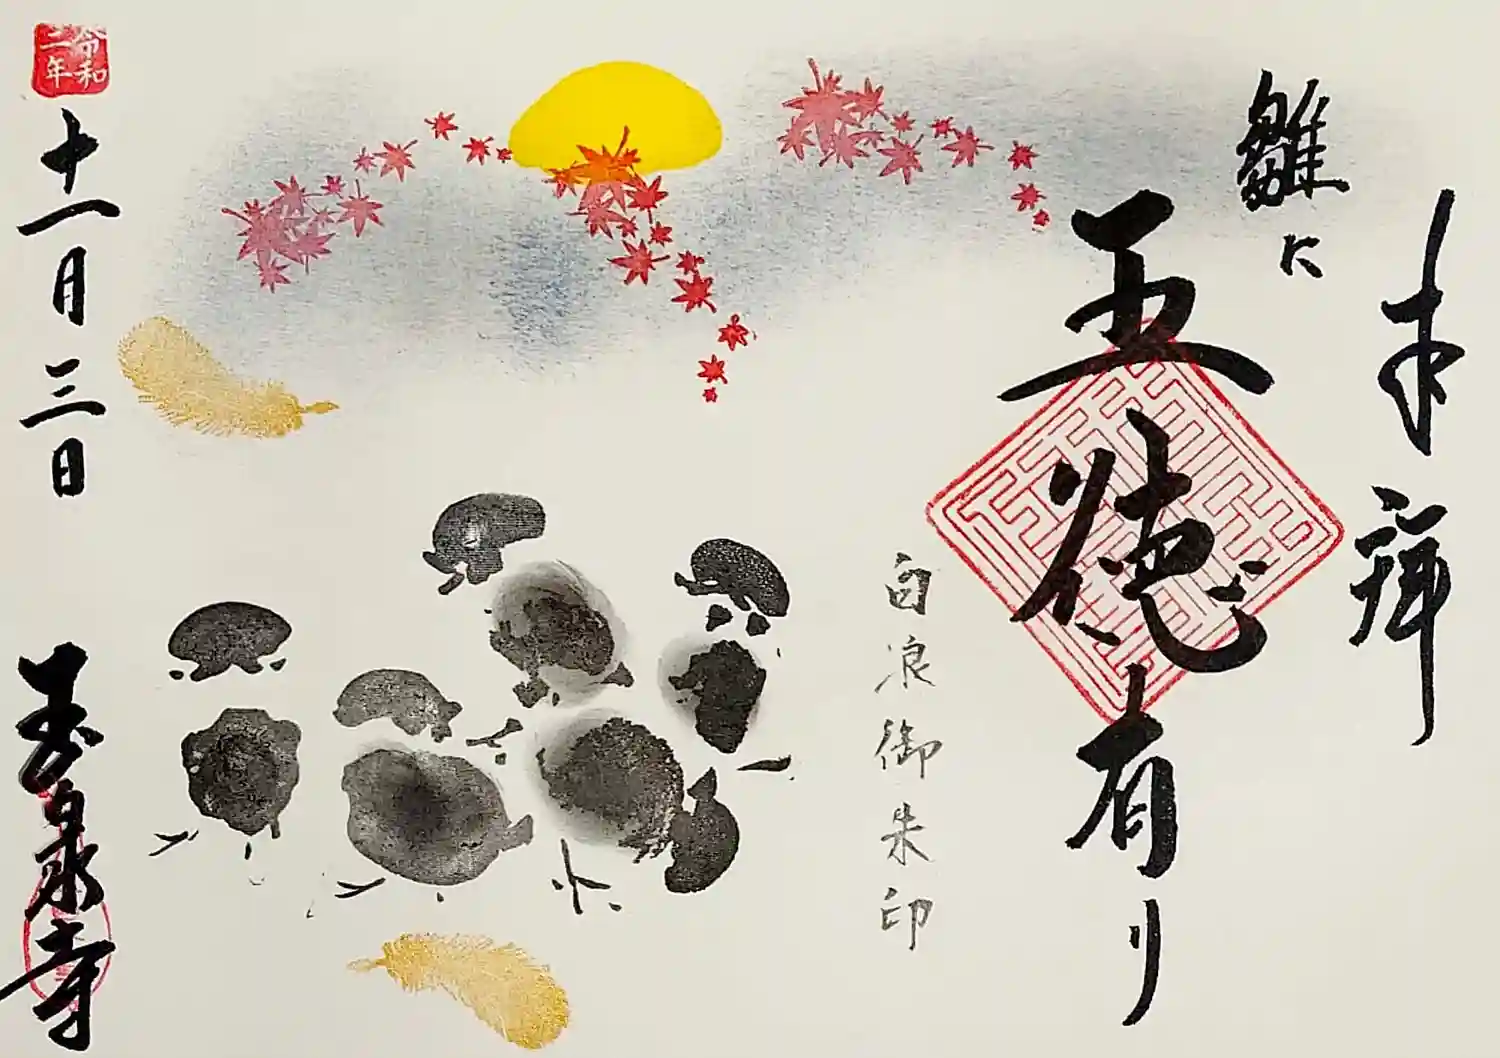 奉拝
雛に
五徳有り
白浪御朱印
令和二年
十一月三日
玉泉寺